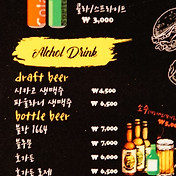 콜라/스프라이트
₩ 3,000
Alchol Drink
draft beer
시카고 생맥주 ₩6,500
파울라너 생맥주 ₩6,500
bottle beer
블랑 1664 ₩ 7,000
₩ 7,000
호가든 ₩ 6,000
호가든 로제 ₩ 6,500